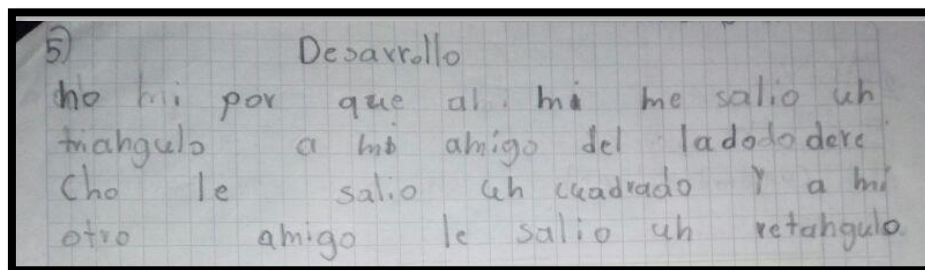 5) Desarrollo
no mi por que al mi me salio un
triangulo a mi amigo del ladodo dere
cho le salio un cuadrado y a mi
otro amigo le salio un retangulo.